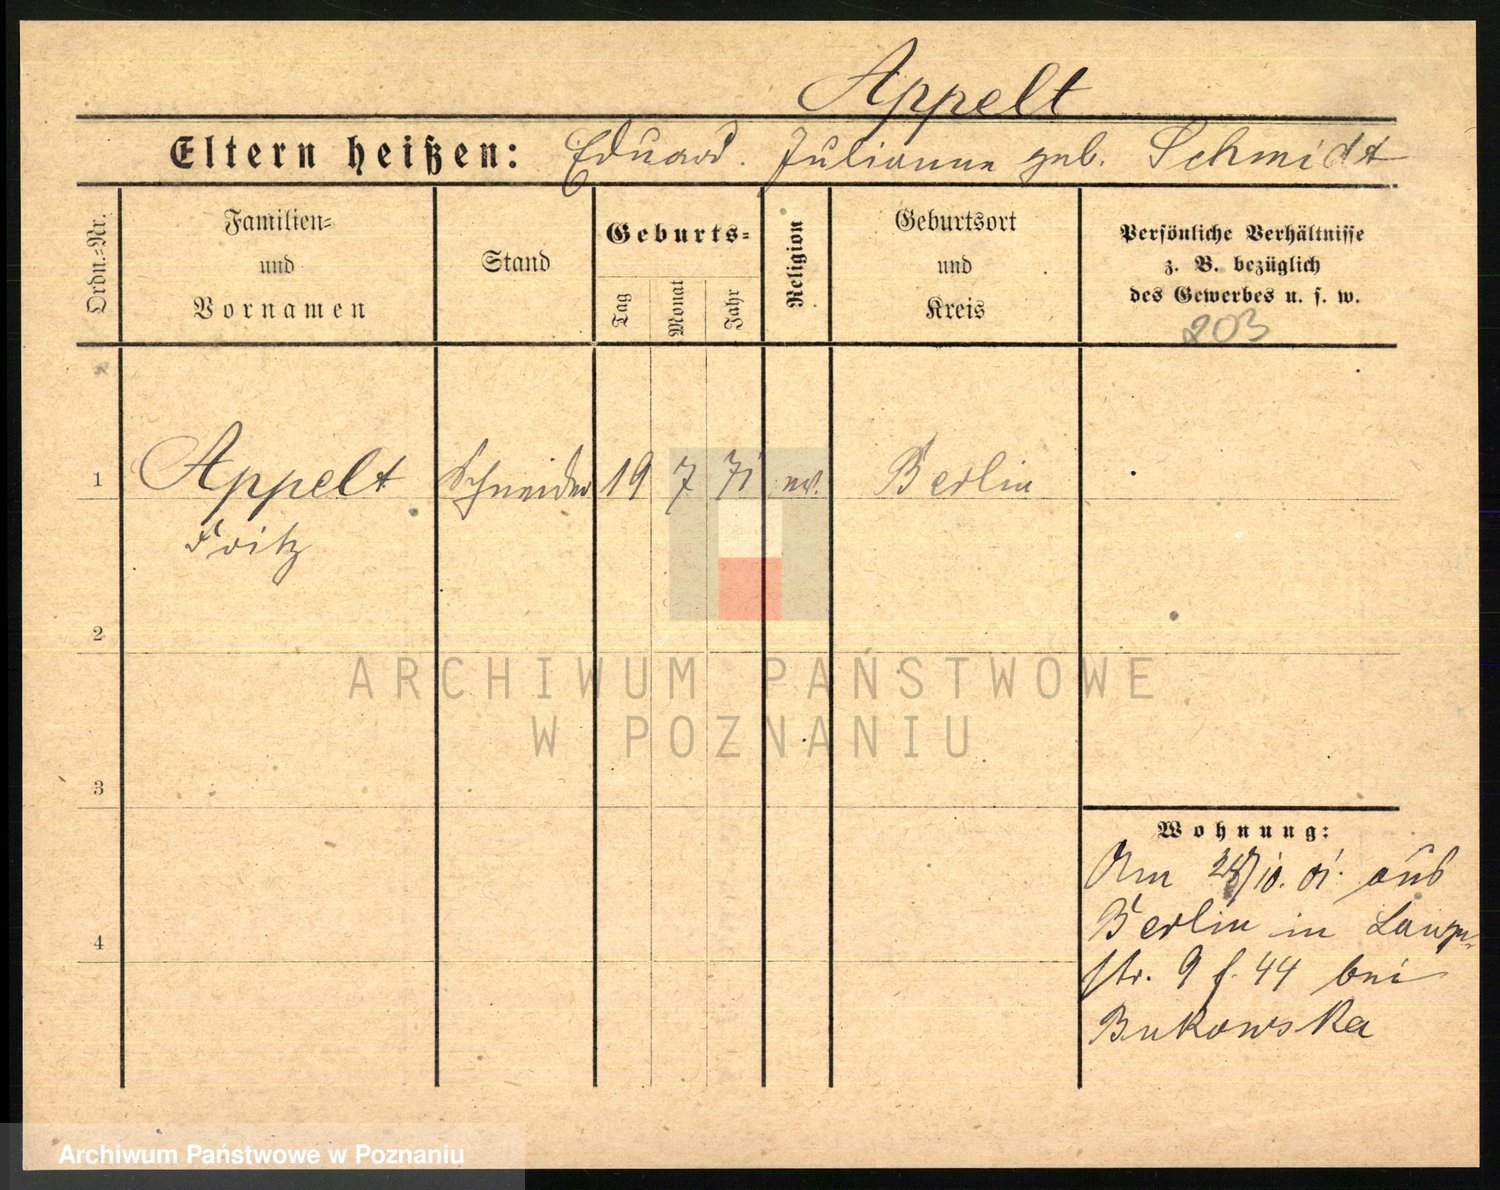 Appelt
Eltern heißen: Eduard. Julianne geb. Schmidt
Ordn.=Nr.
Familien=
und
Vornamen
Stand
Geburts=
Tag
Monat
Jahr
Religion
Geburtsort
und
Kreis
Persönliche Verhältnisse
z. B. bezüglich
des Gewerbes u. s. w.
203
1 Appelt Schneider 19 7 71 ev. Berlin
Fritz
2
3
4
Wohnung:
Am /10. 01. aus
Berlin in Lange
str. 9 f. 44 bei
Bukowska
ARCHIWUM PAŃSTWOWE
W POZNANIU
Archiwum Państwowe w Poznaniu